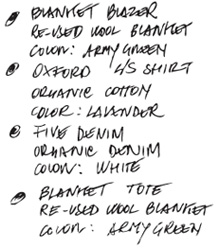 BLANKET BLAZER
RE-USED WOOL BLANKET
COLOR: ARMY GREEN
OXFORD L/S SHIRT
ORGANIC COTTON
COLOR: LAVENDER
FIVE DENIM
ORGANIC DENIM
COLOR: WHITE
BLANKET TOTE
RE-USED WOOL BLANKET
COLOR: ARMY GREEN